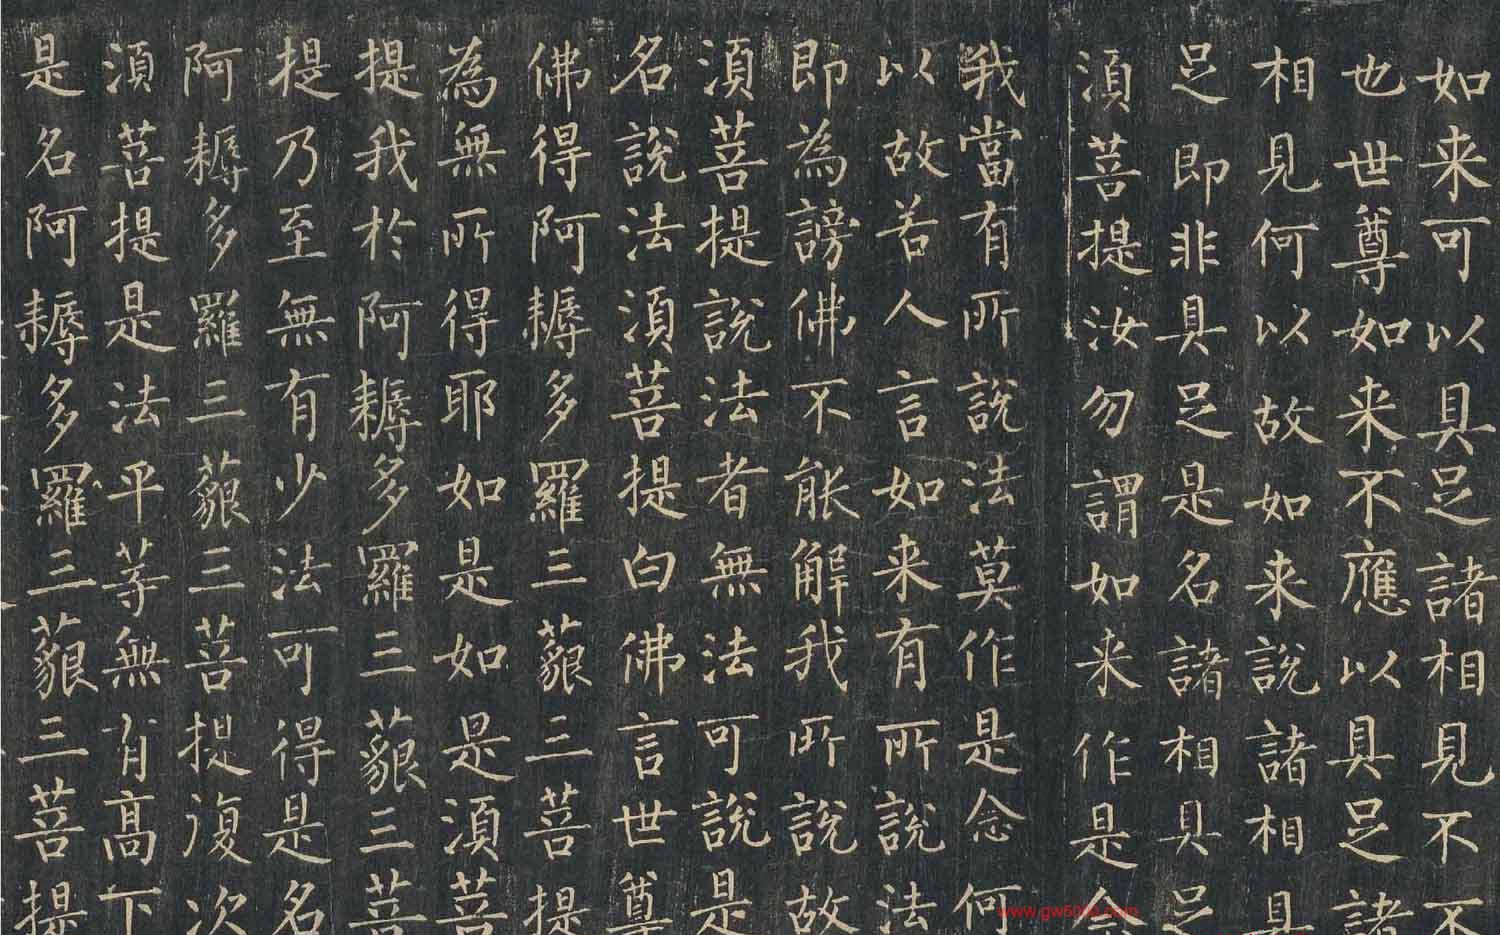 如来可以具足諸相見不不
也世尊如来不應以具足諸
相見何以故如来說諸相具
足即非具足是名諸相具足
須菩提汝勿謂如来作是念
我當有所說法莫作是念何
以故若人言如来有所說法
即為謗佛不能解我所說故
須菩提說法者無法可說是
名說法須菩提白佛言世尊
佛得阿耨多羅三藐三菩提
為無所得耶如是如是須菩
提我於阿耨多羅三藐三菩
提乃至無有少法可得是名
阿耨多羅三藐三菩提復次
須菩提是法平等無有高下
是名阿耨多羅三藐三菩提